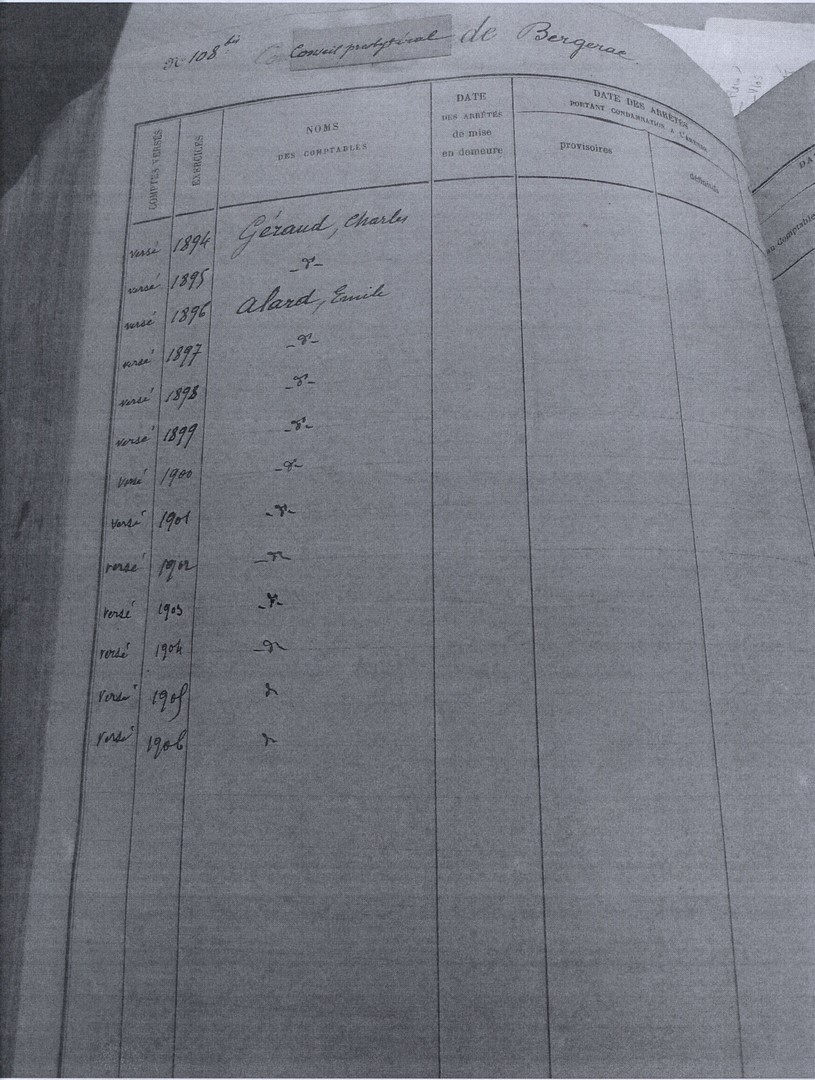 N° 108 bis Conseil presbytéral de Bergerac.
COMPTES VERSÉS
EXERCICES
NOMS
DES COMPTABLES
DATE
DES ARRÊTÉS
de mise
en demeure
DATE DES ARRÊTÉS
PORTANT CONDAMNATION A L'AMENDE
provisoires
définitifs
versé 1894 Géraud, Charles
versé 1895 -d°-
versé 1896 Alard, Emile
versé 1897 -d°-
versé 1898 -d°-
versé 1899 -d°-
versé 1900 -d°-
versé 1901 -d°-
versé 1902 -d°-
versé 1903 -d°-
versé 1904 -d°-
versé 1905 d°
versé 1906 d°
DA
au Comptable